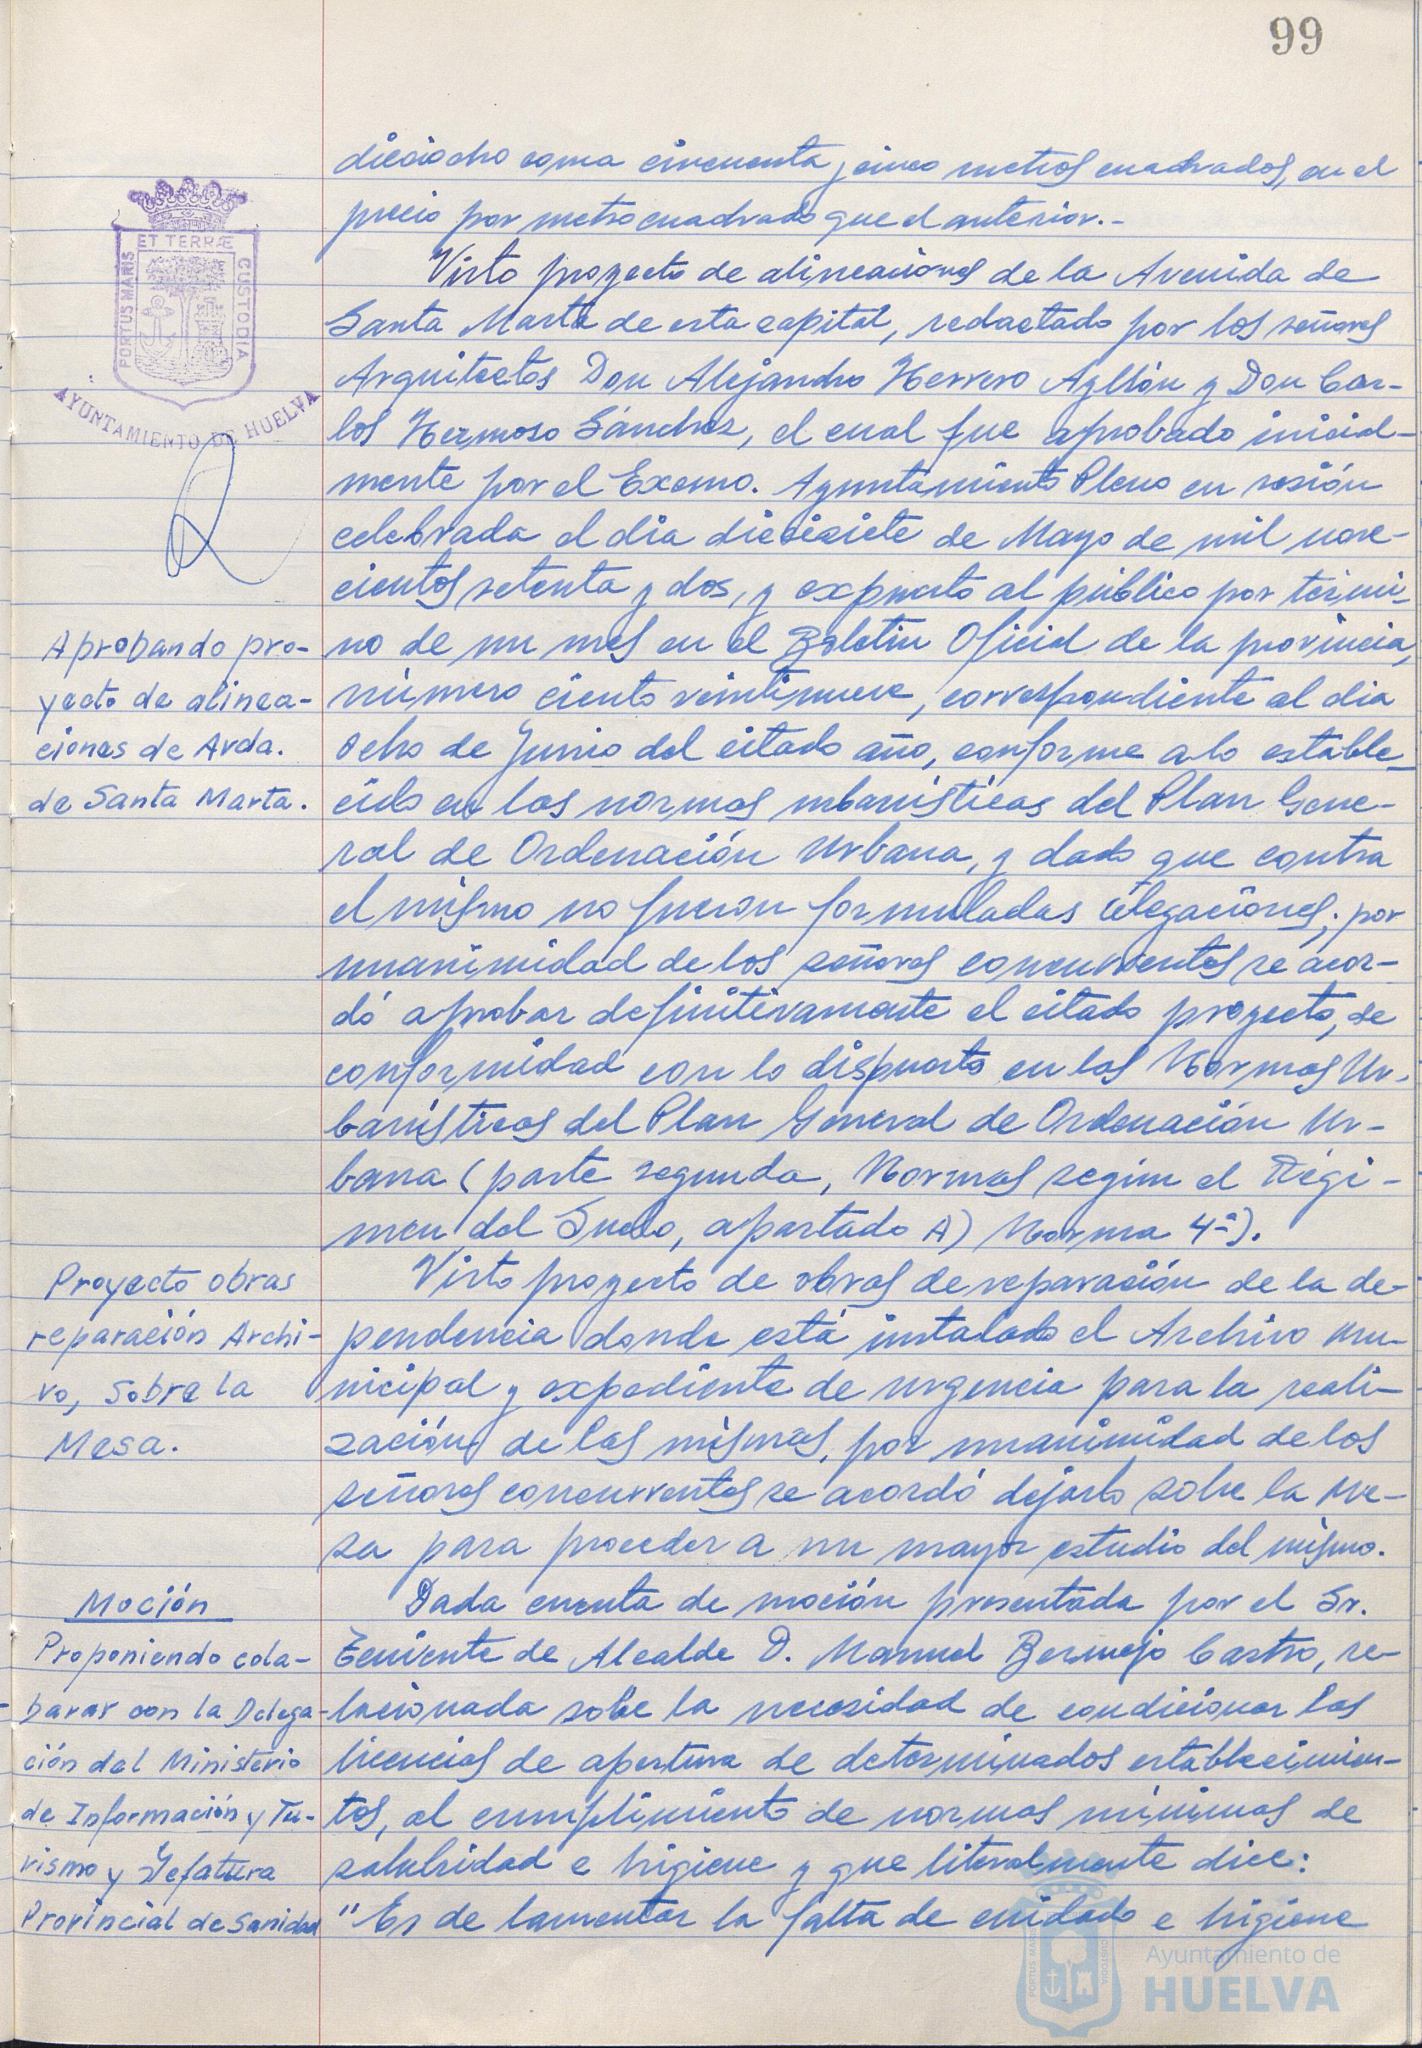 99
dieciocho coma cincuenta y cinco metros cuadrados, en el
precio por metro cuadrado que el anterior.-
ET TERRÆ
PORTUS MARIS
CUSTODIA
AYUNTAMIENTO DE HUELVA
Visto proyecto de alineaciones de la Avenida de
Santa Marta de esta capital, redactado por los señores
Arquitectos Don Alejandro Herrero Ayllón y Don Car-
los Hermoso Sánchez, el cual fue aprobado inicial-
mente por el Excmo. Ayuntamiento Pleno en sesión
celebrada el dia diecisiete de Mayo de mil nove-
cientos setenta y dos, y expuesto al público por térmi-
Aprobando pro-
yecto de alinea-
ciones de Avda.
de Santa Marta.
no de un mes en el Boletin Oficial de la provincia,
número ciento veintinueve, correspondiente al dia
ocho de Junio del citado año, conforme a lo estable-
cido en las normas urbanísticas del Plan Gene-
ral de Ordenación Urbana, y dado que contra
el mismo no fueron formuladas alegaciones, por
unanimidad de los señores concurrentes se acor-
dó aprobar definitivamente el citado proyecto, de
conformidad con lo dispuesto en las Normas Ur-
banísticas del Plan General de Ordenación Ur-
bana (parte segunda, Normas según el Régi-
men del Suelo, apartado A) Norma 4ª).
Proyecto obras
reparación Archi-
vo, sobre la
Mesa.
Visto proyecto de obras de reparación de la de-
pendencia donde está instalado el Archivo Mu-
nicipal y expediente de urgencia para la reali-
zación de las mismas, por unanimidad de los
señores concurrentes se acordó dejarlo sobre la Me-
sa para proceder a un mayor estudio del mismo.
Moción
Proponiendo cola-
borar con la Delega-
ción del Ministerio
de Información y Tu-
rismo y Jefatura
Provincial de Sanidad
Dada cuenta de moción presentada por el Sr.
Teniente de Alcalde D. Manuel Bermejo Castro, re-
lacionada sobre la necesidad de condicionar las
licencias de apertura de determinados establecimien-
tos, al cumplimiento de normas mínimas de
salubridad e higiene y que literalmente dice:
"Es de lamentar la falta de cuidado e higiene
Ayuntamiento de
HUELVA